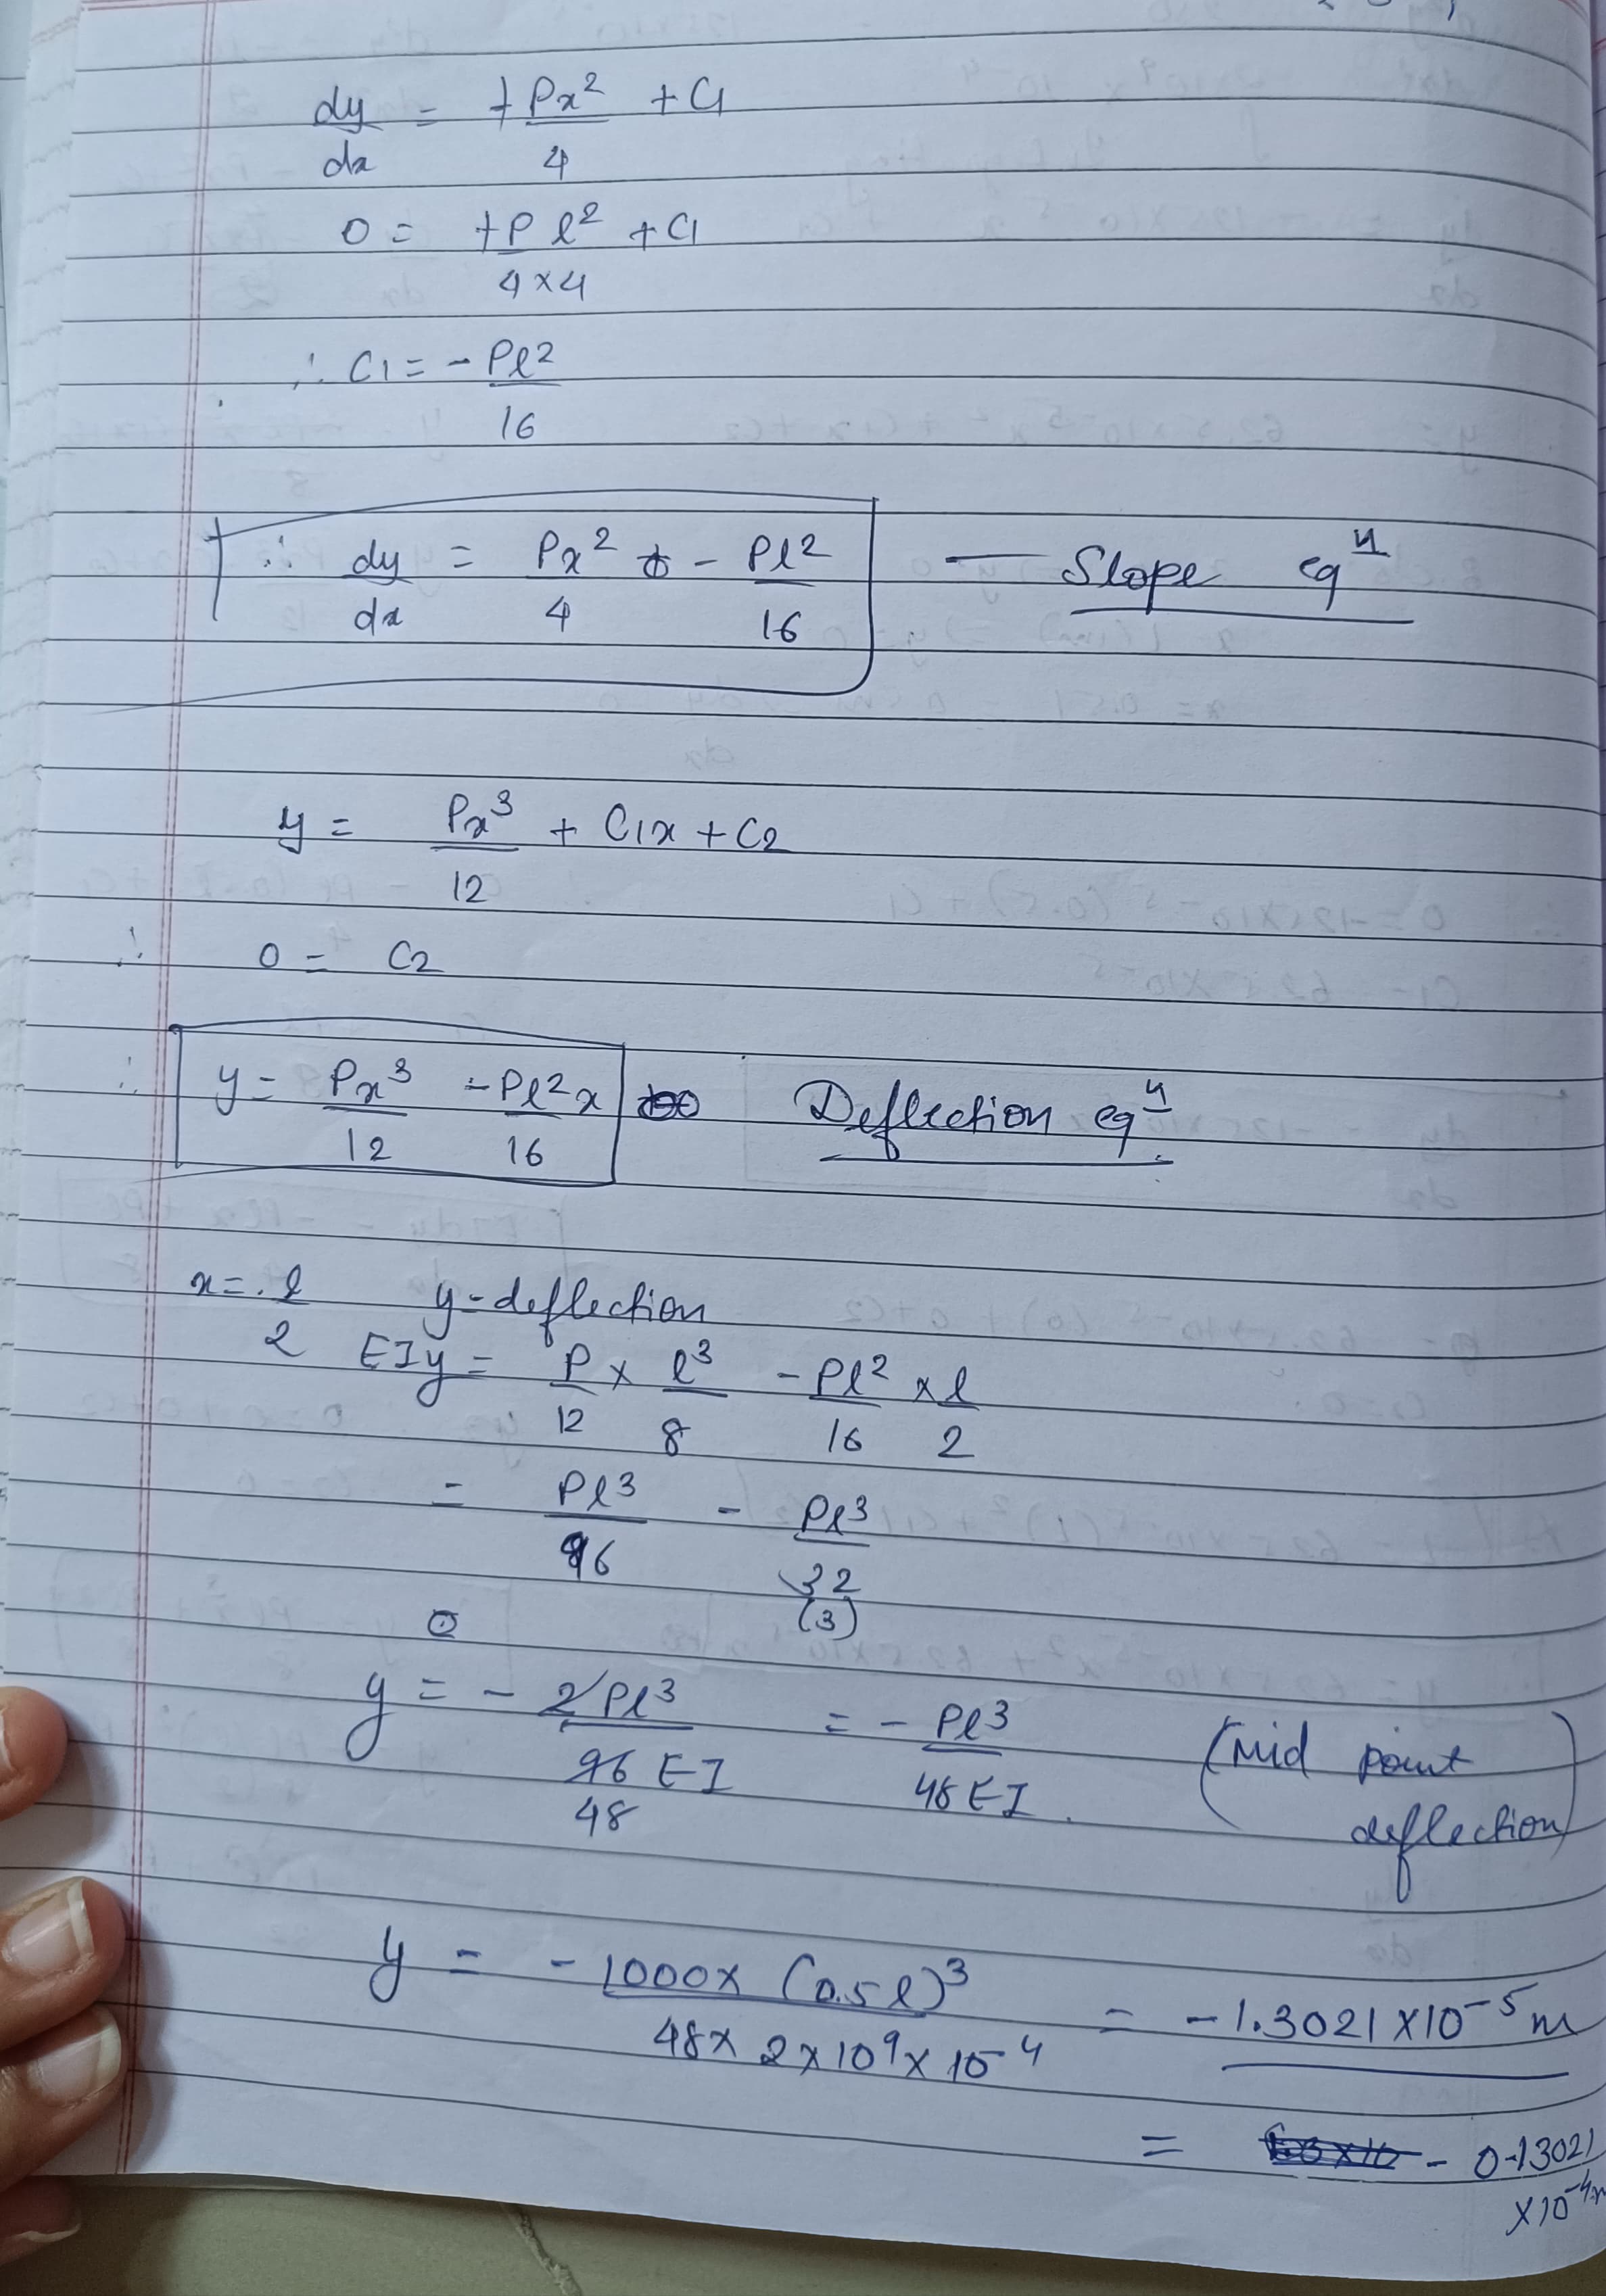 dy/dx = +Px²/4 + C1
0 = +Pl²/(4×4) + C1
∴ C1 = -Pl²/16
∴ dy/dx = Px²/4 - Pl²/16 — Slope eqn
y = Px³/12 + C1x + C2
∴ 0 = C2
∴ y = Px³/12 - Pl²x/16 Deflection eqn
x = l/2 y = deflection
EIy = P/12 × l³/8 - Pl²/16 × l/2
= Pl³/96 - Pl³/32 (3)
y = - 2Pl³/96EI 48 = - Pl³/48EI . (Mid point deflection)
y = - 1000 × (0.5l)³/(48 × 2×10⁹ × 10⁻⁴) = -1.3021 × 10⁻⁵ m
= - 0.13021 × 10⁻⁴ m